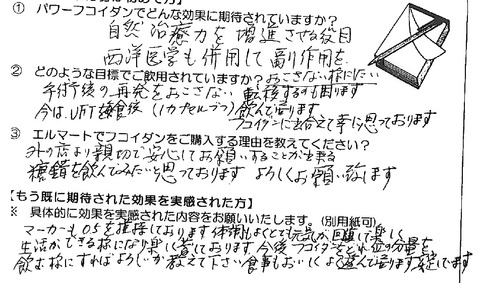 ① パワーフコイダンでどんな効果に期待されていますか？
自然治療力を増進させる役目
西洋医学も併用して副作用を
② どのような目標でご飲用されていますか？おこさない様にしたい
手術後の再発をおこさない 転移するのも困ります
今は、UFT 後（1カプセルづつ）飲んで居ります
フコイダンに出会えて幸に思っております
③ エルマートでフコイダンをご購入する理由を教えてください？
外の店より親切で安心してお願いすることが出来る
糖鎖を飲んでみたいと思っております よろしくお願い致します
【もう既に期待された効果を実感された方】
※ 具体的に効果を実感された内容をお願いいたします。（別用紙可）
マーカーも0.5を維持しております 体調もよくとても元気が回復して楽しく
生活ができる様になり楽しく暮しております 今後フコイダンをどれ位の分量を
飲む様にすればよろしいか教えて下さい 食事もおいしくよく進んで居ります